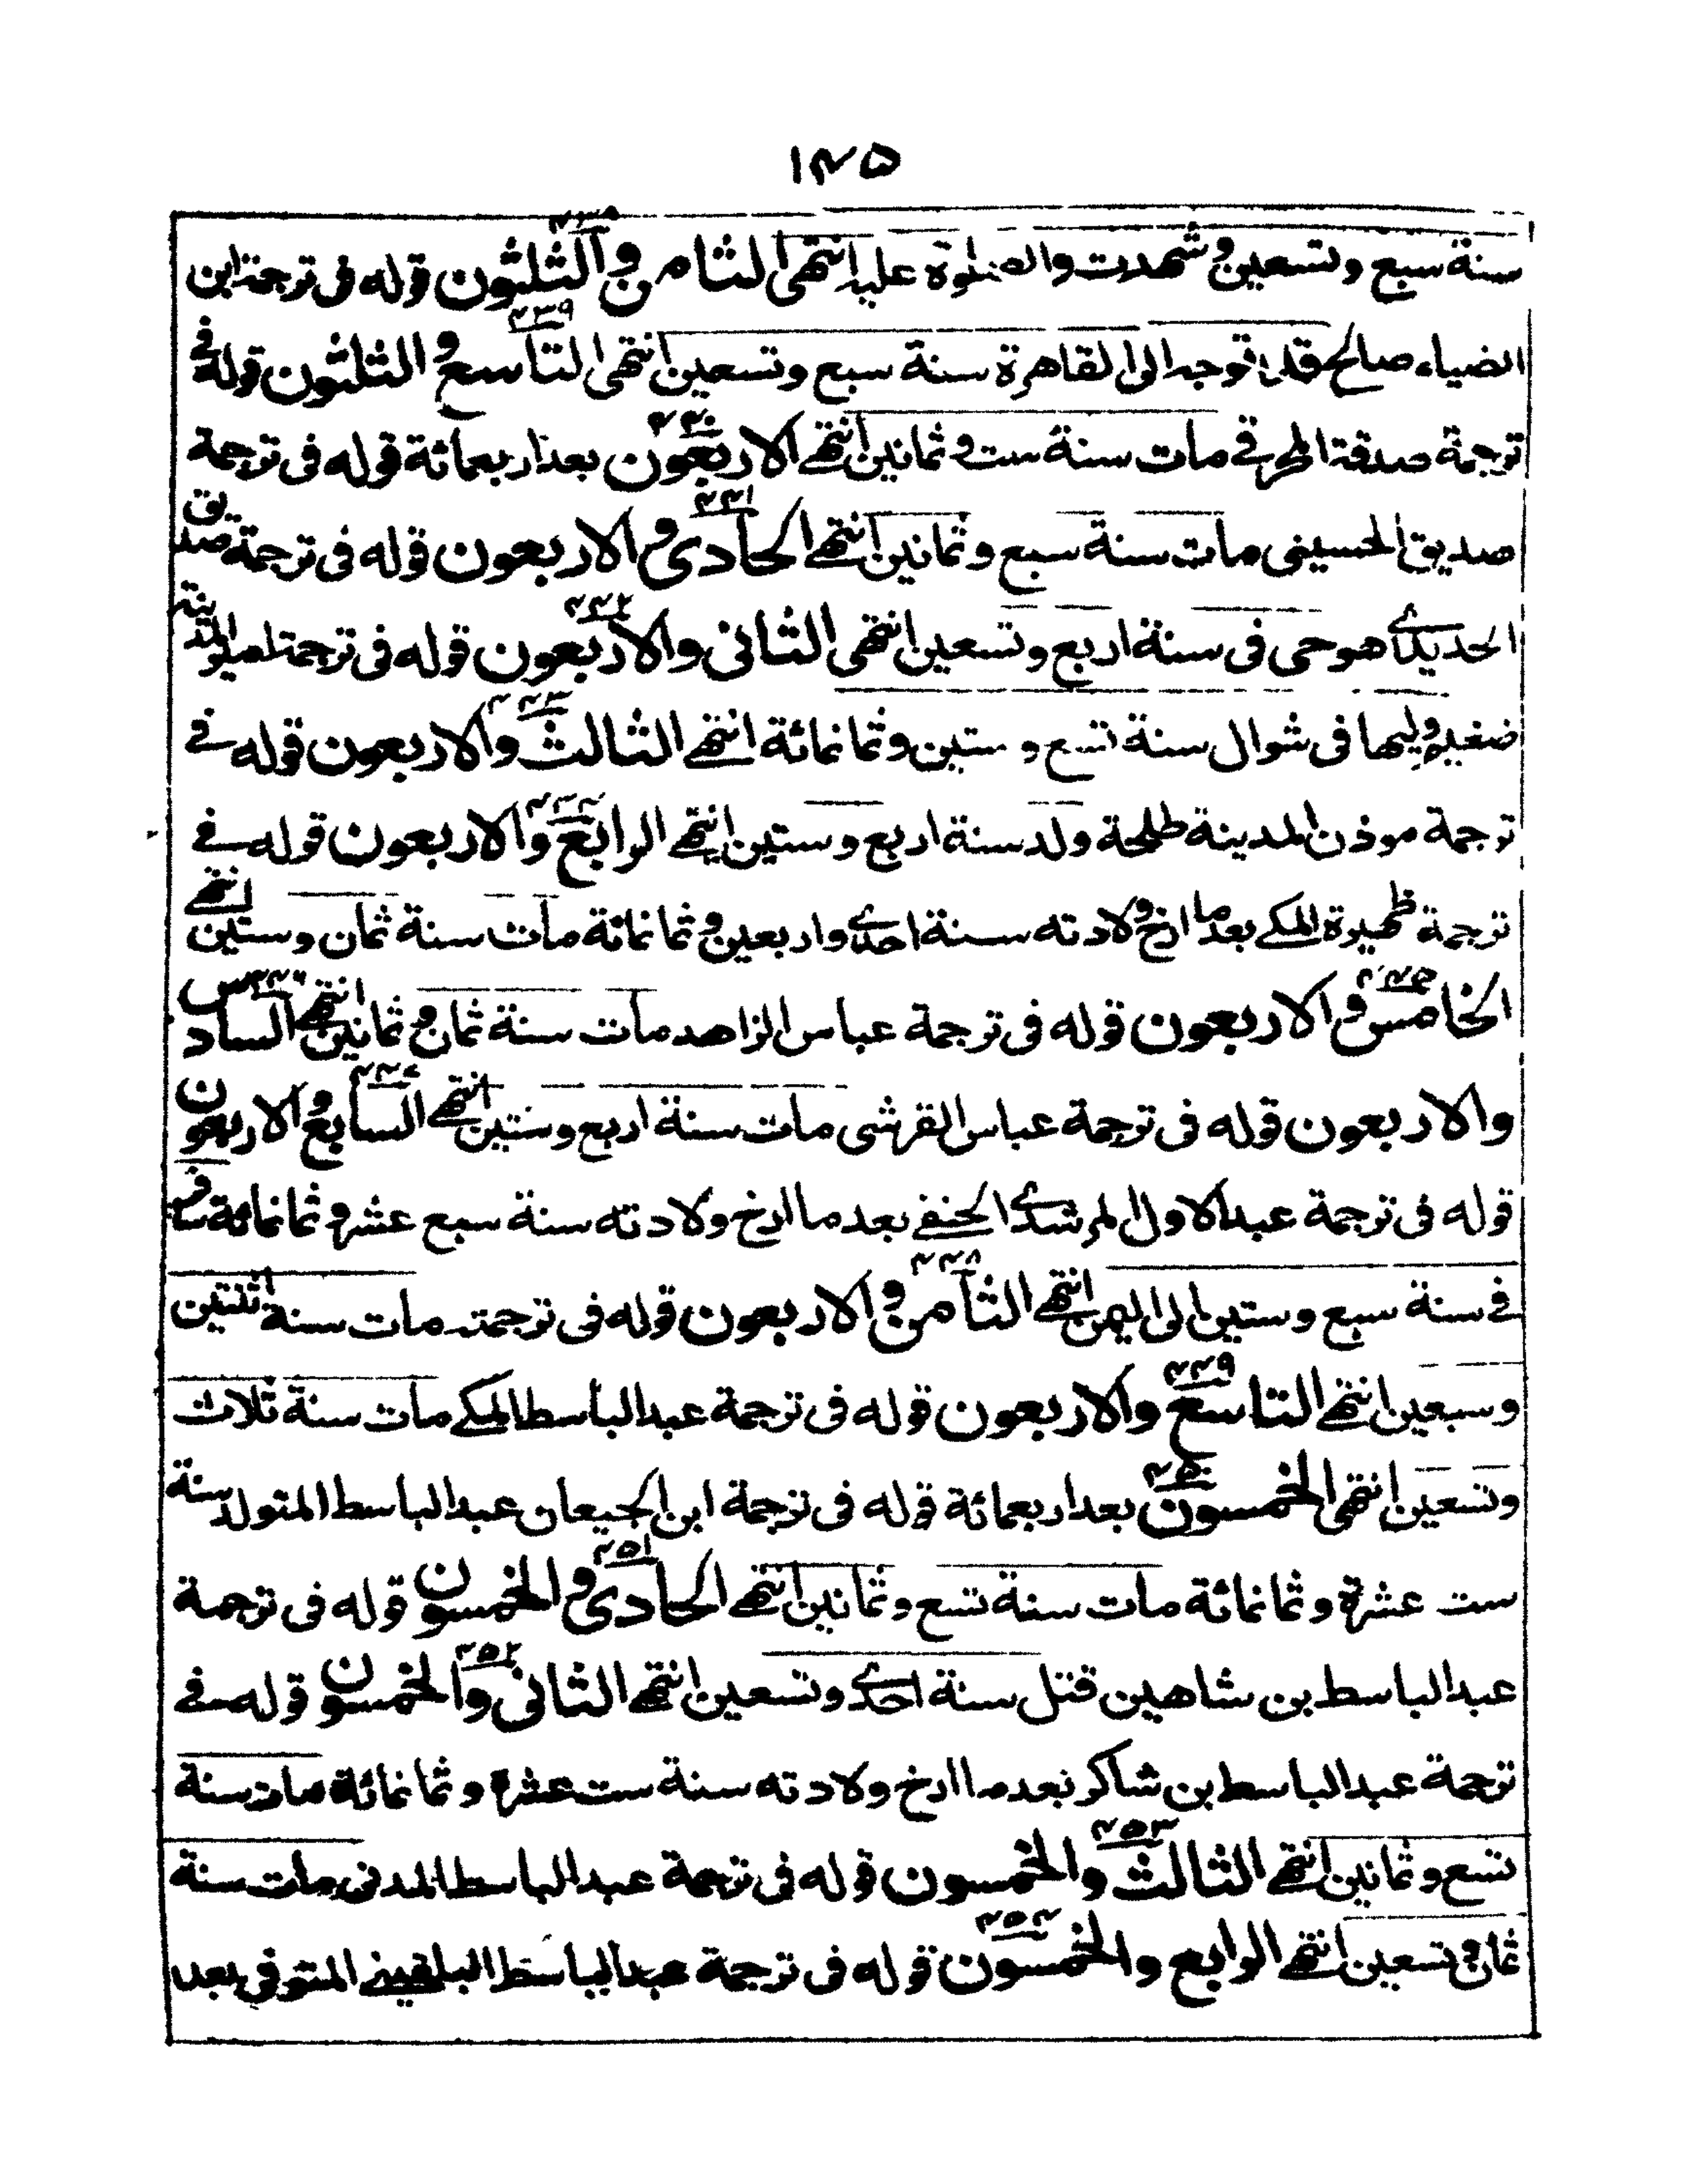 ١٣٥
سنة سبع وتسعين وشهدت والصلوة عليه انتهى الثامن والثلثون قوله فى ترجمة ابن
٤٣٩
الضياء صالح قد توجه الى القاهرة سنة سبع وتسعين انتهى التاسع والثلثون قوله فے
٤٤٠
ترجمة صدقة مات سنة ست وثمانين انتهے الاربعون بعد اربعمائة قوله فى ترجمة
٤٤١
صديق الحسينى مات سنة سبع وثمانين انتهے الحادى والاربعون قوله فى ترجمة صديق
٤٤٢
الحديدے هو حى فى سنة اربع وتسعين انتهى الثانى والاربعون قوله فى ترجمة امير المدينة
٤٤٣
ضغيم وليها فى شوال سنة تسع وستين وثمانمائة انتهے الثالث والاربعون قوله فے
٤٤٤
ترجمة موذن المدينة طلحة ولد سنة اربع وستين انتهے الرابع والاربعون قوله فے
ترجمة ظهيرة المكے بعد ما ارخ ولادته سنة احدے واربعين وثمانمائة مات سنة ثمان وستين انتهے
٤٤٥ ٤٤٦
الخامس والاربعون قوله فى ترجمة عباس الزاهد مات سنة ثمان وثمانين انتهے السادس
٤٤٧
والاربعون قوله فى ترجمة عباس القرشى مات سنة اربع وستين انتهے السابع والاربعون
قوله فى ترجمة عبد الاول المرشدے الحنفے بعد ما ارخ ولادته سنة سبع عشر وثمانمائة سافر
٤٤٨
فے سنة سبع وستين الى اليمن انتهے الثامن والاربعون قوله فى ترجمته مات سنة اثنتين
٤٤٩
وسبعين انتهے التاسع والاربعون قوله فى ترجمة عبد الباسط المكے مات سنة ثلاث
٤٥٠
وتسعين انتهى الخمسون بعد اربعمائة قوله فى ترجمة ابن الجيعان عبد الباسط المتولد سنة
٤٥١
ست عشرة وثمانمائة مات سنة تسع وثمانين انتهے الحادى والخمسون قوله فى ترجمة
٤٥٢
عبد الباسط بن شاهين قتل سنة احدے وتسعين انتهے الثانى والخمسون قوله فے
ترجمة عبد الباسط بن شاكر بعد ما ارخ ولادته سنة ست عشرة وثمانمائة مات سنة
٤٥٣
تسع وثمانين انتهے الثالث والخمسون قوله فى ترجمة عبد الباسط المدنى مات سنة
٤٥٤
ثمان وتسعين انتهے الرابع والخمسون قوله فى ترجمة عبد الباسط البلقينے المتوفى بعد